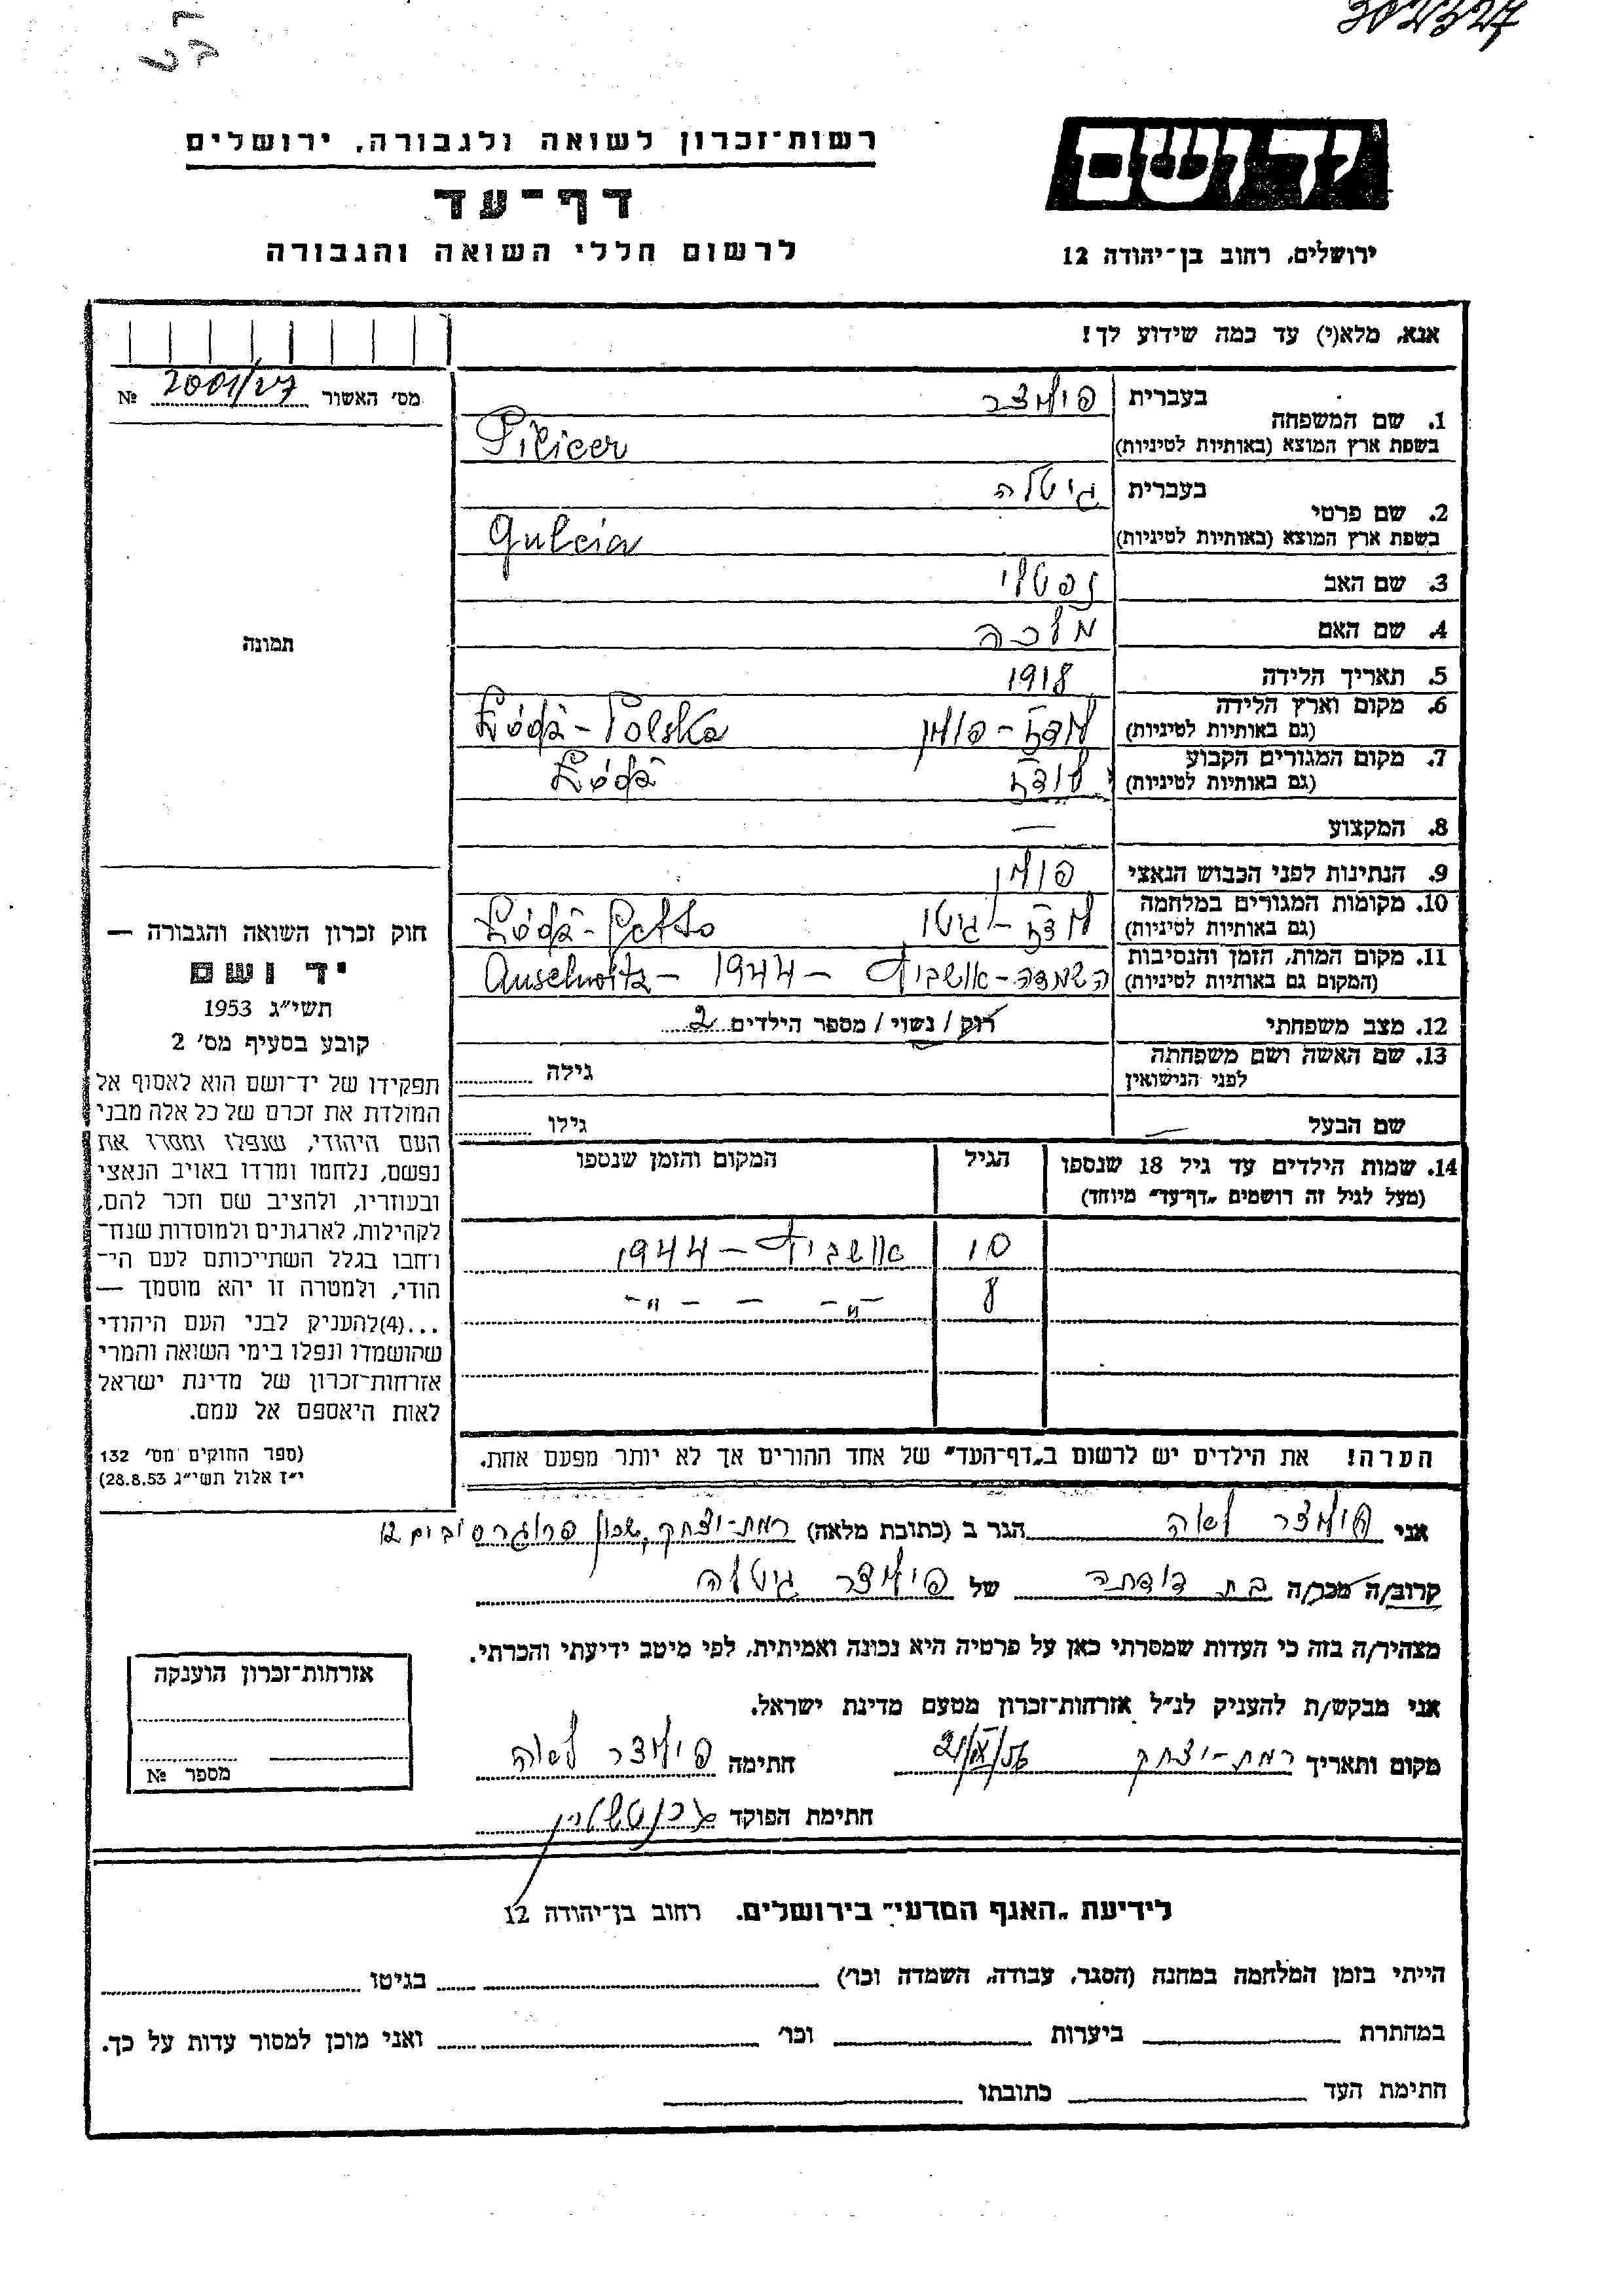 302327
רשות־זכרון לשואה ולגבורה, ירושלים
דף־עד
לרשום חללי השואה והגבורה
יד ושם
ירושלים, רחוב בן־יהודה 12
אנא, מלא(י) עד כמה שידוע לך!
מס׳ האשור 2001/27 №
1. שם המשפחה בעברית פיליצר
בשפת ארץ המוצא (באותיות לטיניות) Pilicer
2. שם פרטי בעברית גיטלה
בשפת ארץ המוצא (באותיות לטיניות) Gulcia
3. שם האב נפטלי
4. שם האם מלכה
5. תאריך הלידה 1918
6. מקום וארץ הלידה (גם באותיות לטיניות) לודז׳ - פולין Łódź - Polska
7. מקום המגורים הקבוע (גם באותיות לטיניות) לודז׳ Łódź
8. המקצוע —
9. הנתינות לפני הכבוש הנאצי פולין
10. מקומות המגורים במלחמה (גם באותיות לטיניות) לודז׳ - גיטו Łódź - Getto
11. מקום המות, הזמן והנסיבות (המקום גם באותיות לטיניות) השמדה - אושביץ - 1944 - Auschwitz
12. מצב משפחתי רוק / נשוי / מספר הילדים 2
13. שם האשה ושם משפחתה לפני הנישואין גילה
שם הבעל — גילו
14. שמות הילדים עד גיל 18 שנספו הגיל המקום והזמן שנספו
(מעל לגיל זה רושמים „דף־עד״ מיוחד)
10 אושביץ - 1944
8 - „ - - - „ -
הערה! את הילדים יש לרשום ב„דף־העד״ של אחד ההורים אך לא יותר מפעם אחת.
תמונה
חוק זכרון השואה והגבורה —
יד ושם
תשי״ג 1953
קובע בסעיף מס׳ 2
תפקידו של יד־ושם הוא לאסוף אל
המולדת את זכרם של כל אלה מבני
העם היהודי, שנפלו ומסרו את
נפשם, נלחמו ומרדו באויב הנאצי
ובעוזריו, ולהציב שם וזכר להם,
לקהילות, לארגונים ולמוסדות שנח־
רחבו בגלל השתייכותם לעם הי־
הודי, ולמטרה זו יהא מוסמך —
...(4) להעניק לבני העם היהודי
שהושמדו ונפלו בימי השואה והמרי
אזרחות־זכרון של מדינת ישראל
לאות היאספם אל עמם.
(ספר החוקים מס׳ 132
י״ז אלול תשי״ג 28.8.53)
אני פיליצר לאה הגר ב (כתובת מלאה) רמת-יצחק, שכון פרוגרסיבים 12
קרוב/ה מכר/ה בת דודתה של פיליצר גיטלה
מצהיר/ה בזה כי העדות שמסרתי כאן על פרטיה היא נכונה ואמיתית, לפי מיטב ידיעתי והכרתי.
אני מבקש/ת להעניק לנ״ל אזרחות־זכרון מטעם מדינת ישראל.
מקום ותאריך רמת-יצחק חתימה פיליצר לאה
חתימת הפוקד
אזרחות־זכרון הוענקה
מספר №
לידיעת „האגף המדעי״ בירושלים. רחוב בן־יהודה 12
הייתי בזמן המלחמה במחנה (הסגר, עבודה, השמדה וכר׳) בגיטו
במחתרת ביערות וכר׳ ואני מוכן למסור עדות על כך.
חתימת העד כתובתו